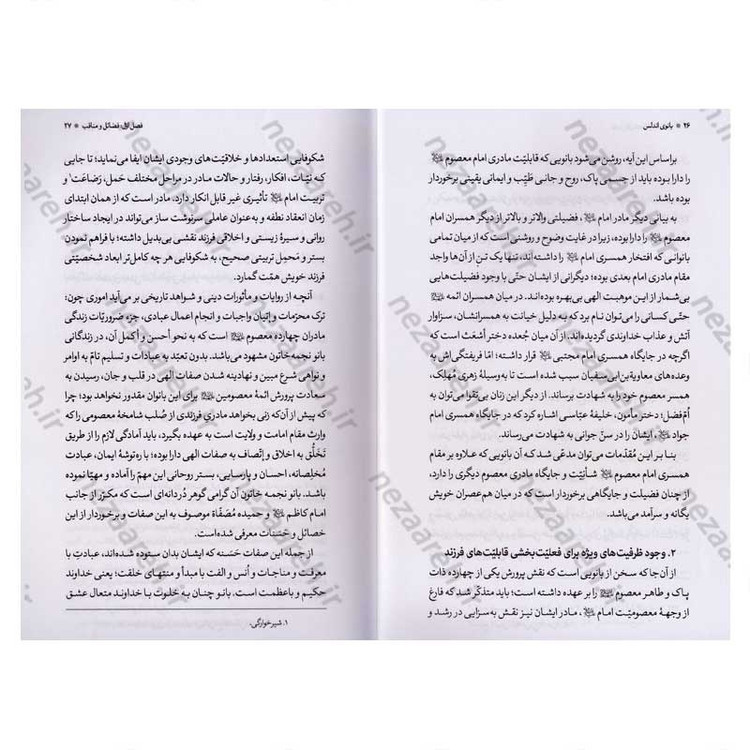 ۲۶ ■ بانوی اندلس
براساس این آیه، روشن می‌شود بانویی که قابلیّت مادری امام معصوم
را دارا بوده باید از جسمی پاک، روح و جانی طیّب و ایمانی یقینی برخوردار
بوده باشد.
به بیانی دیگر مادر امام، فضیلتی والاتر و بالاتر از دیگر همسران امام
معصوم را دارا بوده، زیرا در غایت وضوح و روشنی است که از میان تمامی
بانوانی که افتخار همسری امام را داشته‌اند، تنها یک تن از آن‌ها واجد
مقام مادری امام بعدی بوده؛ دیگرانی از ایشان حتّی با وجود فضیلت‌هایی
بی‌شمار از این موهبت الهی بی‌بهره بوده‌اند. در میان همسران ائمه
حتّی کسانی را می‌توان نام برد که به دلیل خیانت به همسرانشان، سزاوار
آتش و عذاب خداوندی گردیده‌اند. از آن میان جُعده دختر أشعَث است که
اگرچه در جایگاه همسری امام مجتبی قرار داشته؛ امّا فریفتگی‌اش به
وعده‌های معاویة بن ابی‌سفیان سبب شده است تا به‌وسیلهٔ زهری مُهلِک،
همسر معصوم خود را به شهادت برساند. از دیگر این زنان بی‌تقوا می‌توان به
أمّ‌فضل؛ دختر مأمون، خلیفهٔ عبّاسی اشاره کرد که در جایگاه همسری امام
جواد، ایشان را در سنّ جوانی به شهادت می‌رساند.
بنا بر این مُقدّمات می‌توان مدعّی شد که آن بانویی که علاوه بر مقام
همسری امام معصوم شأنیّت و جایگاه مادری معصوم دیگری را دارد،
از چنان فضیلت و جایگاهی برخوردار است که در میان هم‌عصران خویش
یگانه و سرآمد می‌باشد.
۲. وجود ظرفیت‌های ویژه برای فعلیّت‌بخشی قابلیّت‌های فرزند
از آن‌جا که سخن از بانویی است که نقش پرورش یکی از چهارده ذات
پاک و طاهر معصوم را بر عهده داشته است؛ باید متذکّر شد که فارغ
از وجههٔ معصومیّت امام، مادر ایشان نیز نقش به‌سزایی در رشد و
فصل اوّل: فضائل و مناقب ■ ۲۷
شکوفایی استعدادها و خلاقیّت‌های وجودی ایشان ایفا می‌نماید؛ تا جایی
که نیّات، افکار، رفتار و حالات مادر در مراحل مختلف حَمل، رَضاعَت۱ و
تربیت امام تأثیری غیر قابل انکار دارد. مادر است که از همان ابتدای
زمان انعقاد نطفه و به‌عنوان عاملی سرنوشت ساز می‌تواند در ایجاد ساختار
روانی و سیرهٔ زیستی و اخلاقی فرزند نقشی بی‌بدیل داشته؛ با فراهم نمودن
بستر و مَحمل تربیتی صحیح، به شکوفایی هر چه کامل‌تر ابعاد شخصیّتی
فرزند خویش همّت گمارد.
آنچه از روایات و مأثورات دینی و شواهد تاریخی بر می‌آید اموری چون:
ترک محرّمات و إتیان واجبات و انجام اعمال عبادی، جزء ضروریّات زندگی
مادران چهارده معصوم است که به نحو أحسن و أکمل آن، در زندگانی
بانو نجمه خاتون مشهود می‌باشد. بدون تعبّد به عبادات و تسلیم تامّ به اوامر
و نواهی شرع مبین و نهادینه شدن صفات الهی در قلب و جان، رسیدن به
سعادت پرورش ائمّهٔ معصومین برای این بانوان مقدور نخواهد بود؛ چرا
که پیش از آن‌که زنی بخواهد مادری فرزندی از صُلب شامخهٔ معصومی را که
وارث مقام امامت و ولایت است به عهده بگیرد، باید آمادگی لازم را از طریق
تَخَلُّق به اخلاق و إتّصاف به صفات الهی دارا بوده؛ با ره‌توشهٔ ایمان، عبادت
مُخلصانه، احسان و پارسایی، بستر روحانی این مهمّ را آماده و مهیّا نموده
باشد. بانو نجمه خاتون آن گرامی گوهر دُردانه‌ای است که مکرّر از جانب
امام کاظم و حمیده مُصَفّاة موصوف به این صفات و برخوردار از این
خصائل و حَسَنات معرفی شده‌است.
از جمله این صفات حَسَنه که ایشان بدان ستوده شده‌اند، عبادت با
معرفت و مناجات و اُنس و الفت با مبدأ و منتهای خلقت؛ یعنی خداوند
حکیم و باعظمت است. بانو چنان به خلوت با خداوند متعال عشق
۱. شیرخوارگی.
nezaareh.ir